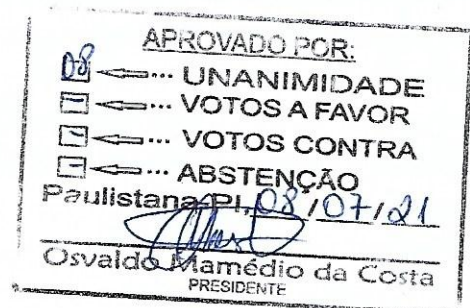 APROVADO POR:
08 ... UNANIMIDADE
- ... VOTOS A FAVOR
- ... VOTOS CONTRA
- ... ABSTENÇÃO
Paulistana/PI, 08/07/21
Osvaldo Mamédio da Costa
PRESIDENTE